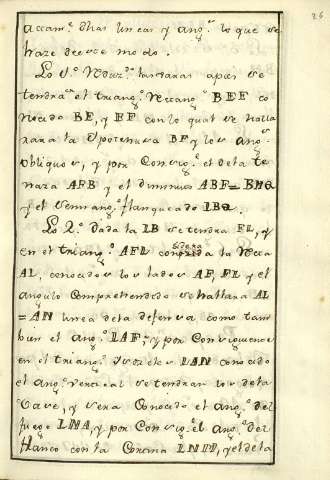 26
accam.^to dhas lineas y ang.^s lo que se
haze deeste modo.
Lo 1.º Reduz.^das las varas apies se
tendra en el triang.º Rectang.º BEF co
nocido BE, y EF con lo qual se halla
rara la Ypotenusa BF y los ang.^s
obliquos, y por Consig.^te el dela te
naza AFB y el diminuto ABF = BHA
y el semiang.º flanqueado IBA.
Lo 2.º dada la IB se tendra FL, y
en el triang.º AFL considera la Recta
AL, conocidos los lados AF, FL y el
angulo Comprehendido se hallara AL
= AN linea dela defensa como tam
bien el ang.º LAF; y por Consiguiente
en el triang.º Ysosceles LAN conocido
el ang.º vertical se tendran los dela
vase, y sera Conocido el ang.º del
fuego LNA, y por Consig.^te el ang.º del
flanco con la Cortina LNM, y el dela